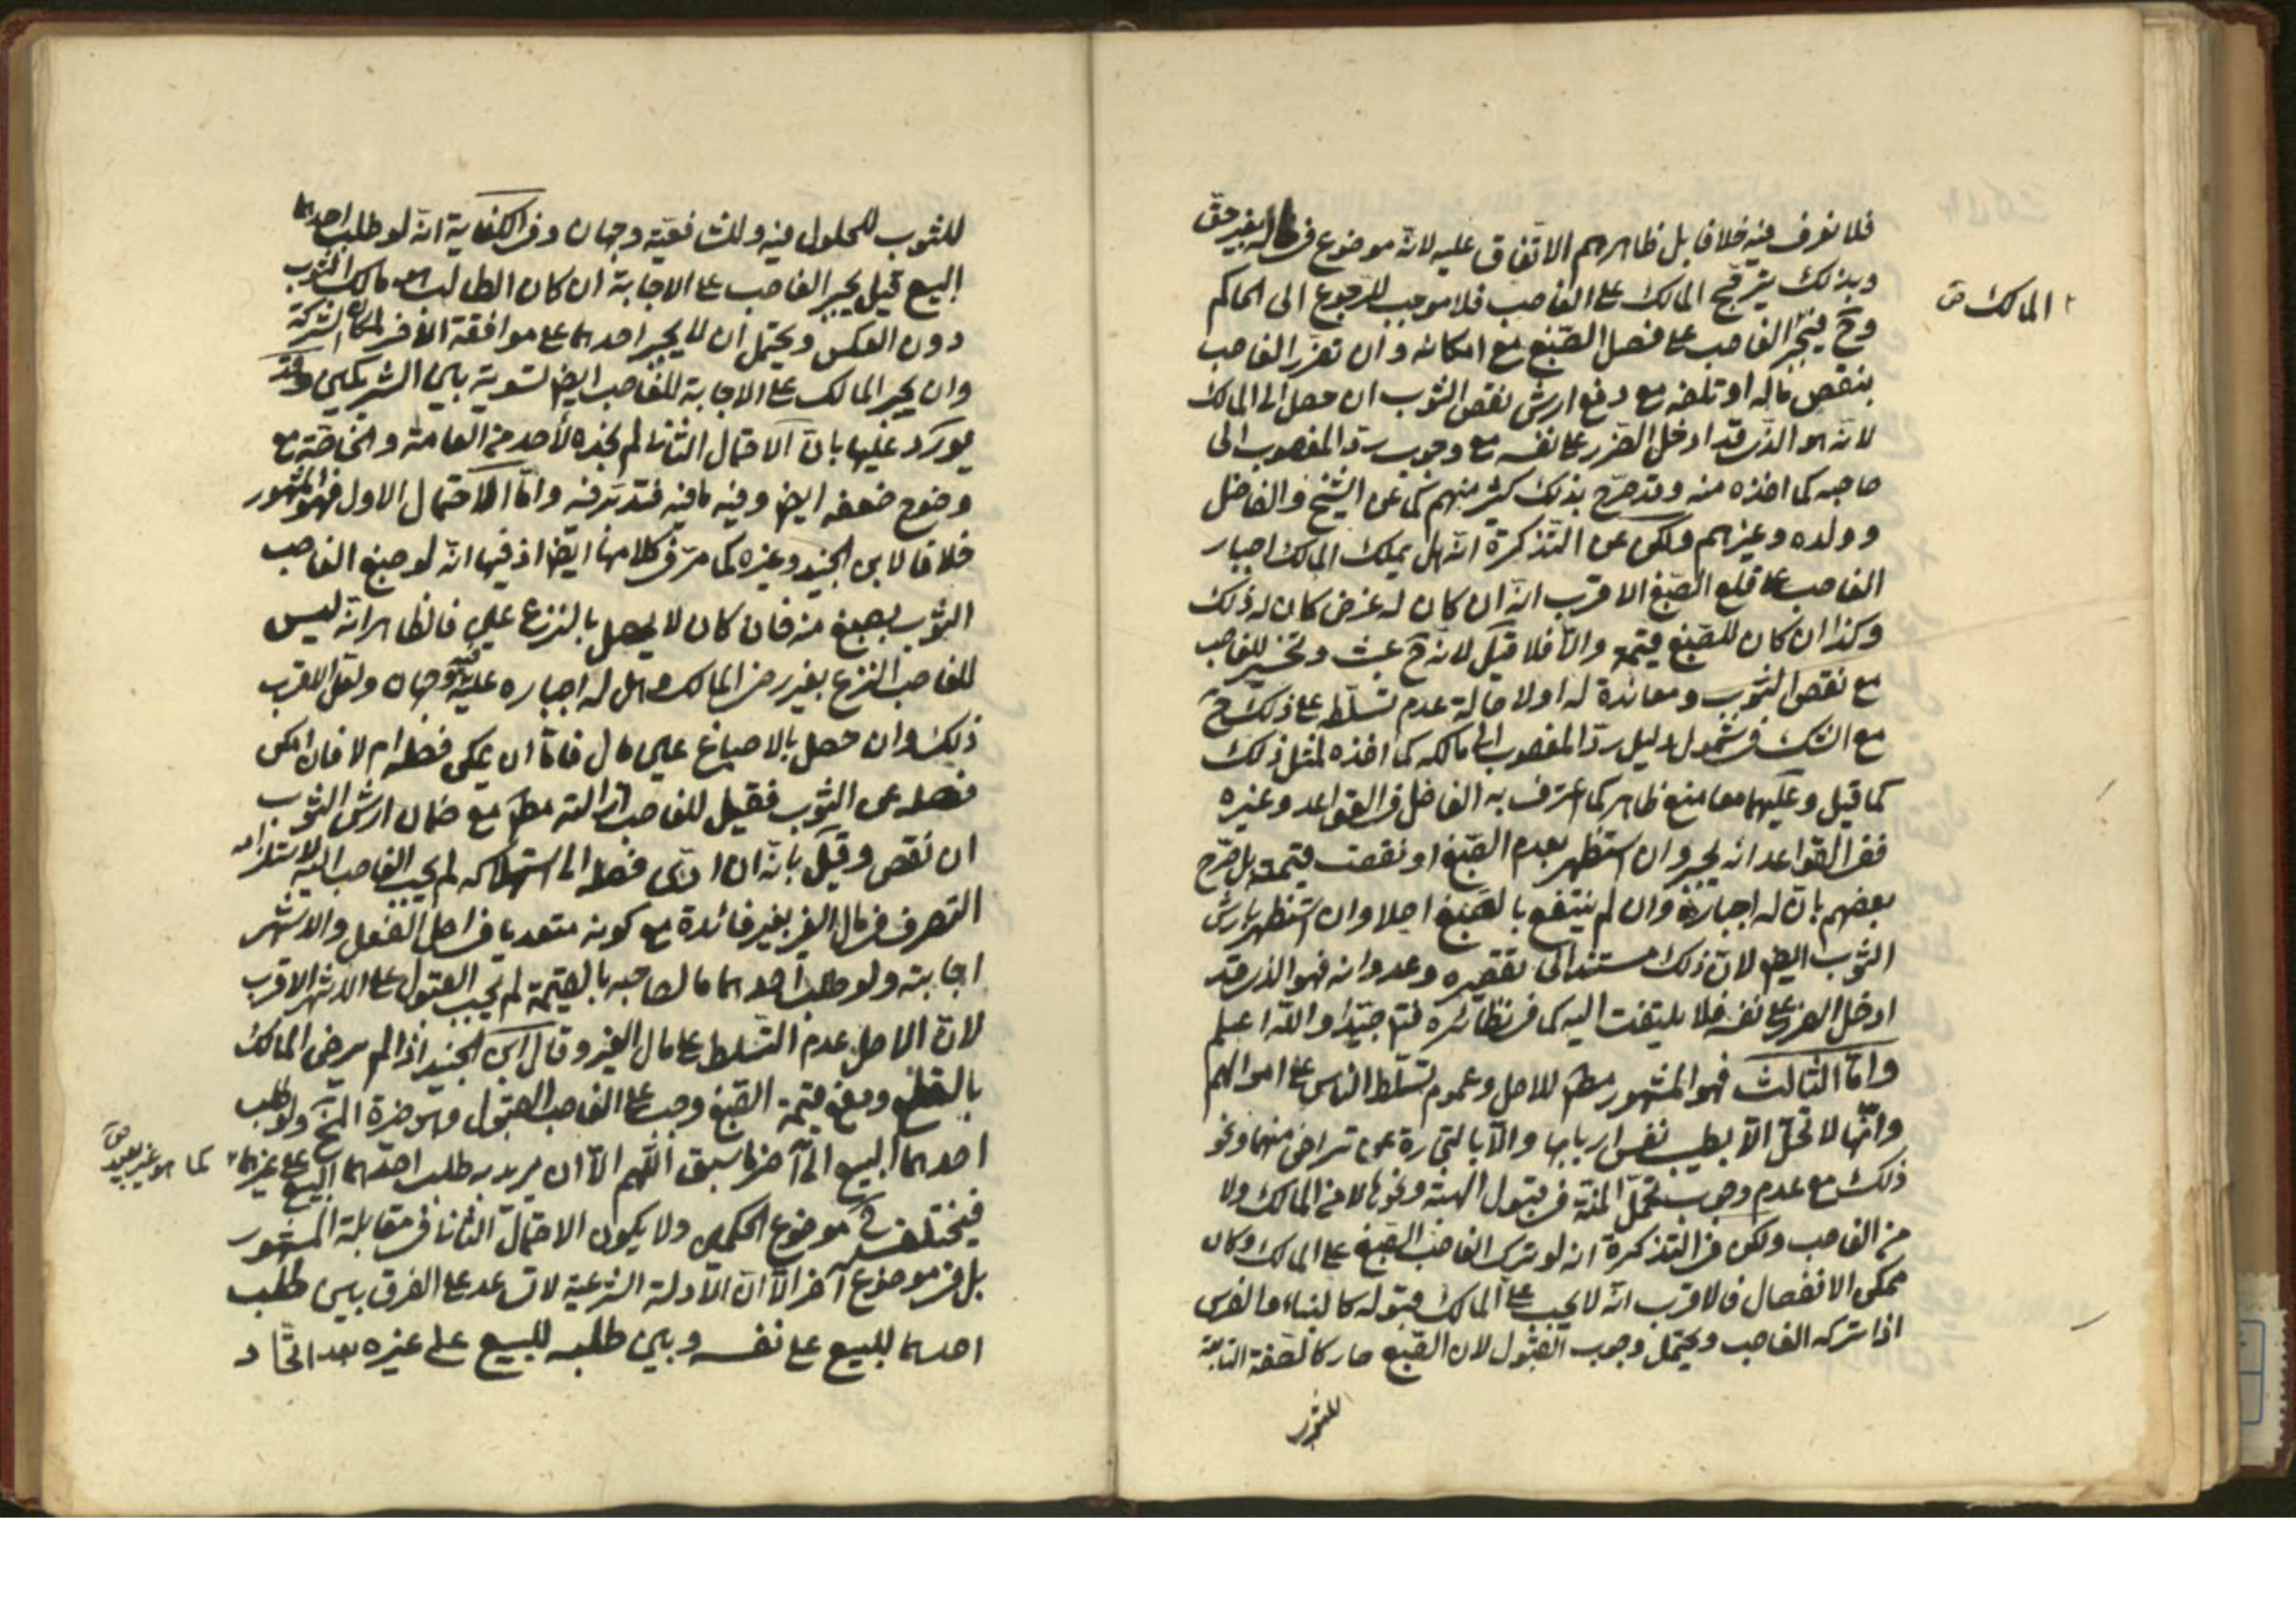 فلا نعرف فيه خلافا بل ظاهرهم الاتفاق عليه لانه موضوع في ماله بغير حق
وبذلك يترجح المالك على الغاصب فلا موجب للرجوع الى الحاكم
وح فيجبر الغاصب على فصل الصبغ مع امكانه وان تضرر الغاصب
بنقص ماله او تلفه مع دفع ارش نقص الثوب ان حصل الى المالك
لانه هو الذي قد ادخل الضرر على نفسه مع وجوب رد المغصوب الى
صاحبه كما اخذه منه وقد صرح بذلك كثير منهم كما عن الشيخ والفاضل
وولده وغيرهم ولكن عن التذكرة انه هل يملك المالك اجبار
الغاصب على قلع الصبغ الاقرب انه ان كان له غرض كان له ذلك
وكذا ان كان للصبغ قيمة والا فلا قيل لانه ح عبث وتخسير للغاصب
مع نقص الثوب ومعاندة له اولا صالة عدم تسلطه على ذلك ح
مع الشك في شمول دليل رد المغصوب الى مالكه كما اخذه لمثل ذلك
كما قيل وعليهما معا منع ظاهر كما اعترف به الفاضل في القواعد وغيره
ففي القواعد انه يجبر وان استضر بعدم الصبغ او نقصت قيمته بل صرح
بعضهم بان له اجباره وان لم ينتفع بالصبغ اصلا وان استظهر بارش
الثوب ايضا لان ذلك مستند الى تقصيره وعدوانه فهو الذي قد
ادخل الضرر على نفسه فلا يلتفت اليه كما في نظائره فتم جيدا والله اعلم
واما الثالث فهو المشهور مطم للاصل وعموم تسلط الناس على اموالهم
وانها لا تحل الا بطيب نفس اربابها والا بالتجارة عن تراض منهما ونحو
ذلك مع عدم وجوب تحمل المنة في قبول الهبة ونحوها لا من المالك ولا
من الغاصب ولكن في التذكرة انه لو ترك الغاصب الصبغ على المالك وكان
ممكن الانفصال فالاقرب انه لا يجب على المالك قبوله كالبناء والغرس
اذا تركه الغاصب ويحتمل وجوب القبول لان الصبغ صار كالصفة التابعة
للثوب
المالك ص
للثوب للحلول فيه وللشافعية وجهان وفي الكفاية انه لو طلب احدهما
البيع قيل يجبر الغاصب على الاجابة ان كان الطالب هو مالك الثوب
دون العكس ويحتمل ان لا يجبر احدهما على موافقة الاخر لمكان الشركة
وان يجبر المالك على الاجابة للغاصب ايضا لتسوية بين الشريكين وقد
يورد عليها بان الاحتمال الثاني لم نجده لاحد من العامة والخاصة مع
وضوح ضعفه ايضا وفيه ما فيه فتدبر فيه واما الاحتمال الاول فهو المشهور
خلافا لابن الجنيد وغيره كما مر في كلامها ايضا اذ فيها انه لو صبغ الغاصب
الثوب بصبغ منه فان كان لا يحصل بالنزع عين فالظاهر انه ليس
للغاصب النزع بغير رضى المالك وهل له اجباره عليه فيه وجهان ولعل الاقرب
ذلك وان حصل بالاصباغ عين مال فاما ان يمكن فصله ام لا فان امكن
فصله عن الثوب فقيل للغاصب ازالته مطم مع ضمان ارش الثوب
ان نقص وقيل بانه ان ادى فصله الى استهلاكه لم يجب الغاصب اليه لاستلزامه
التصرف في مال الغير بغير فائدة مع كونه متعديا في اصل الفعل والاشهر
اجابته ولو طلب احدهما مال صاحبه بالقيمة لم يجب القبول على الاشهر الاقرب
لان الاصل عدم التسلط على مال الغير وقال ابن الجنيد اذا لم يرض المالك
بالقطع ودفع قيمة الصبغ وجب على الغاصب القبول وهو خيرة المخ ولو طلب
احدهما البيع الى آخر ما سبق اللهم الا ان يريد به طلب احدهما البيع على غيرهما
فيختلف ح موضوع الحكمين ولا يكون الاحتمال الثاني في مقابلة المشهور
بل في موضوع آخر الا ان الادلة الشرعية لا تساعد على الفرق بين طلب
احدهما للبيع على نفسه وبين طلبه للبيع على غيره بعد اتحاد
كما هو غير بعيد ص